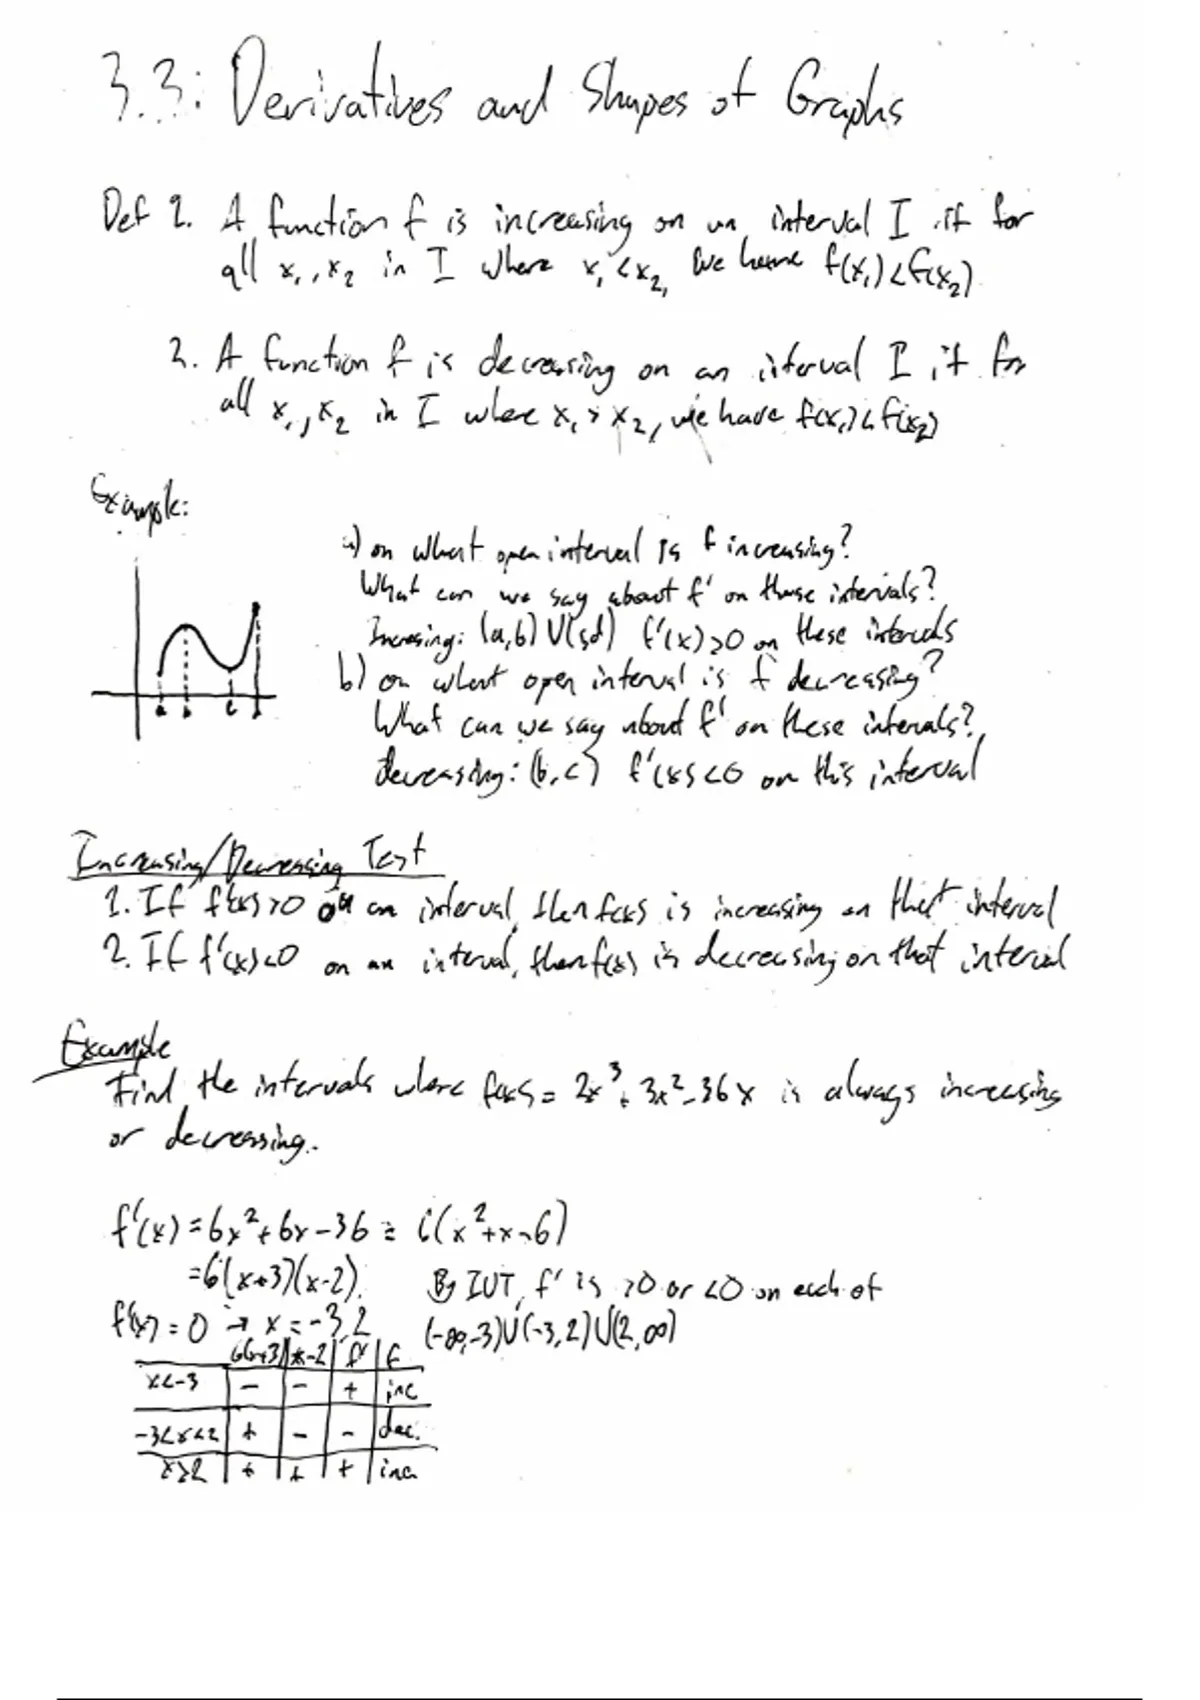 3.3: Derivatives and Shapes of Graphs
Def 1. A function f is increasing on an interval I if for
all x₁, x₂ in I where x₁ < x₂, we have f(x₁) < f(x₂)
2. A function f is decreasing on an interval I if for
all x₁, x₂ in I where x₁ > x₂, we have f(x₁) < f(x₂)
Example:
a) on what open interval is f increasing?
What can we say about f' on these intervals?
Increasing: (a,b) U (c,d) f'(x) > 0 on these intervals
b) on what open interval is f decreasing?
What can we say about f' on these intervals?
decreasing: (b,c) f'(x) < 0 on this interval
a b c d
Increasing/Decreasing Test
1. If f'(x) > 0 on an interval, then f(x) is increasing on that interval
2. If f'(x) < 0 on an interval, then f(x) is decreasing on that interval
Example
Find the intervals where f(x) = 2x³ + 3x² - 36x is always increasing
or decreasing.
f'(x) = 6x² + 6x - 36 = 6(x² + x - 6)
= 6(x+3)(x-2)
By IVT, f' is >0 or <0 on each of
f'(x) = 0 → x = -3, 2
(-∞,-3) U (-3,2) U (2,∞)
6(x+3) x-2 f' f
x<-3 - - + inc
-3<x<2 + - - dec.
x>2 + + + inc